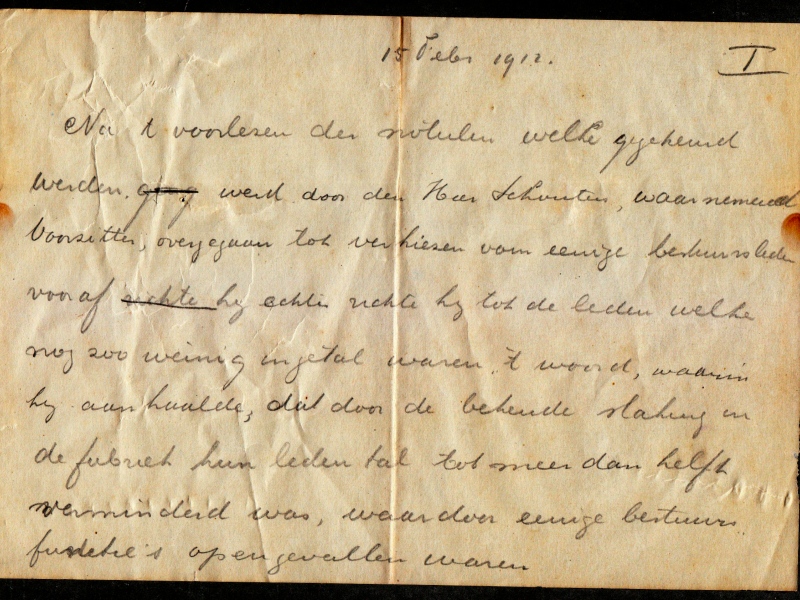 15 Febr 1912.
I
Na 't voorlezen der notulen welke gekeurd
werden. ging werd door den Heer Schouten, waarnemend
Voorzitter, overgegaan tot verkiezen van eenige bestuursleden
vooraf richte hy echter richte hy tot de leden welke
nog zoo weinig in getal waren 't woord, waarin
hy aanhaalde, dat door de bekende staking in
de fabriek hun leden tal tot meer dan helft
verminderd was, waardoor eenige bestuurs
functie's opengevallen waren